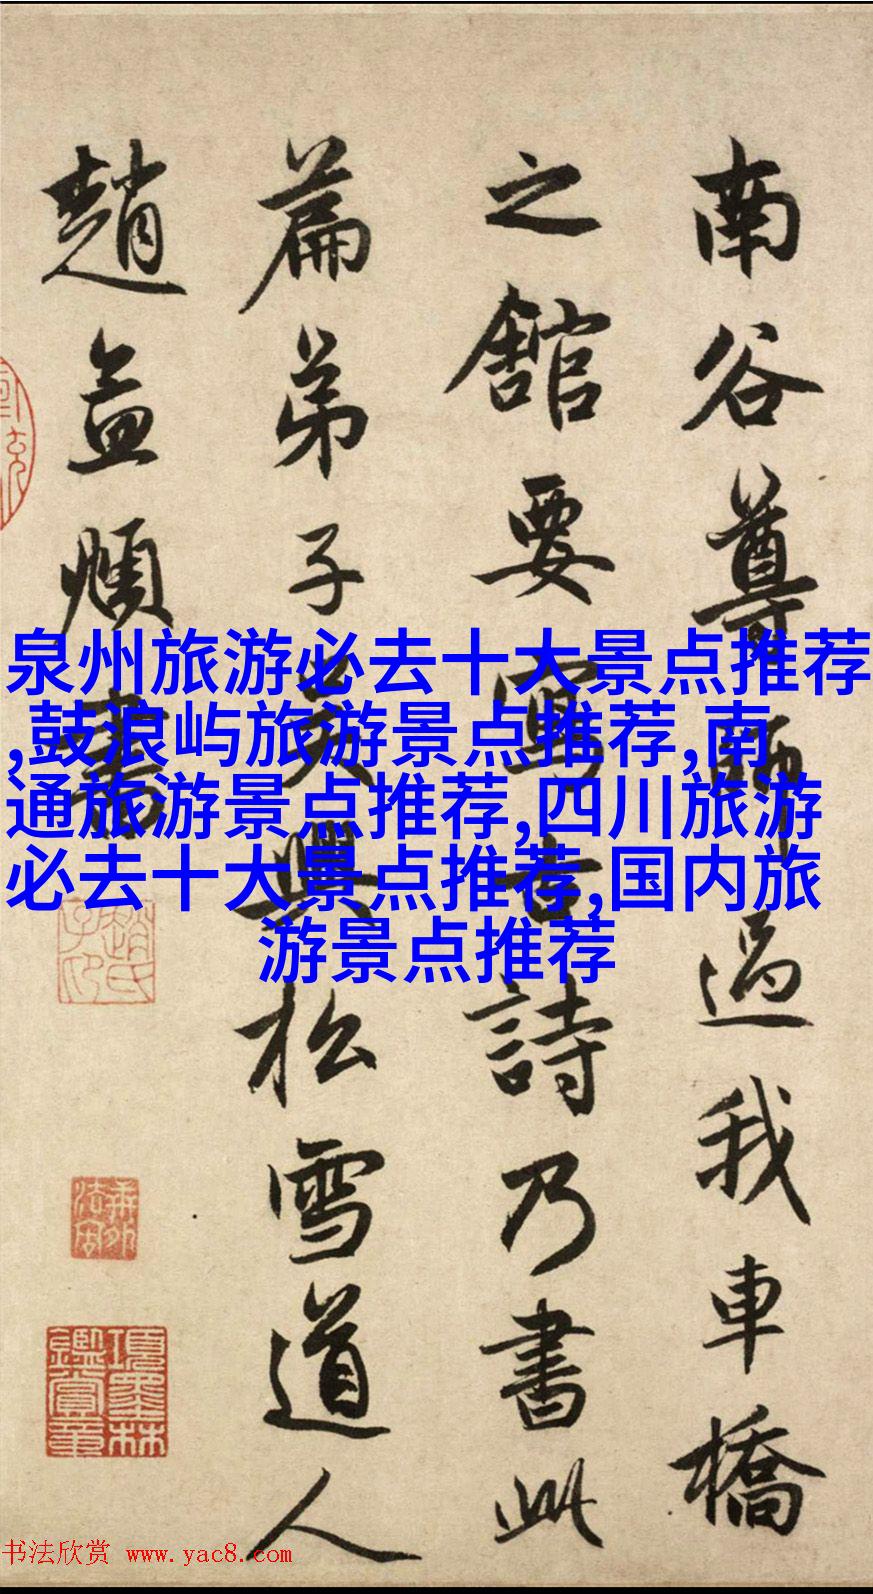 南谷尊師過我車橋
之舘要寫古詩乃書此
篇弟子吳興松雪道人
趙孟頫書
泉州旅游必去十大景点推荐
,鼓浪屿旅游景点推荐,南
通旅游景点推荐,四川旅游
必去十大景点推荐,国内旅
游景点推荐
趙氏子印
項墨林鑑賞章
书法欣赏 www.yac8.com